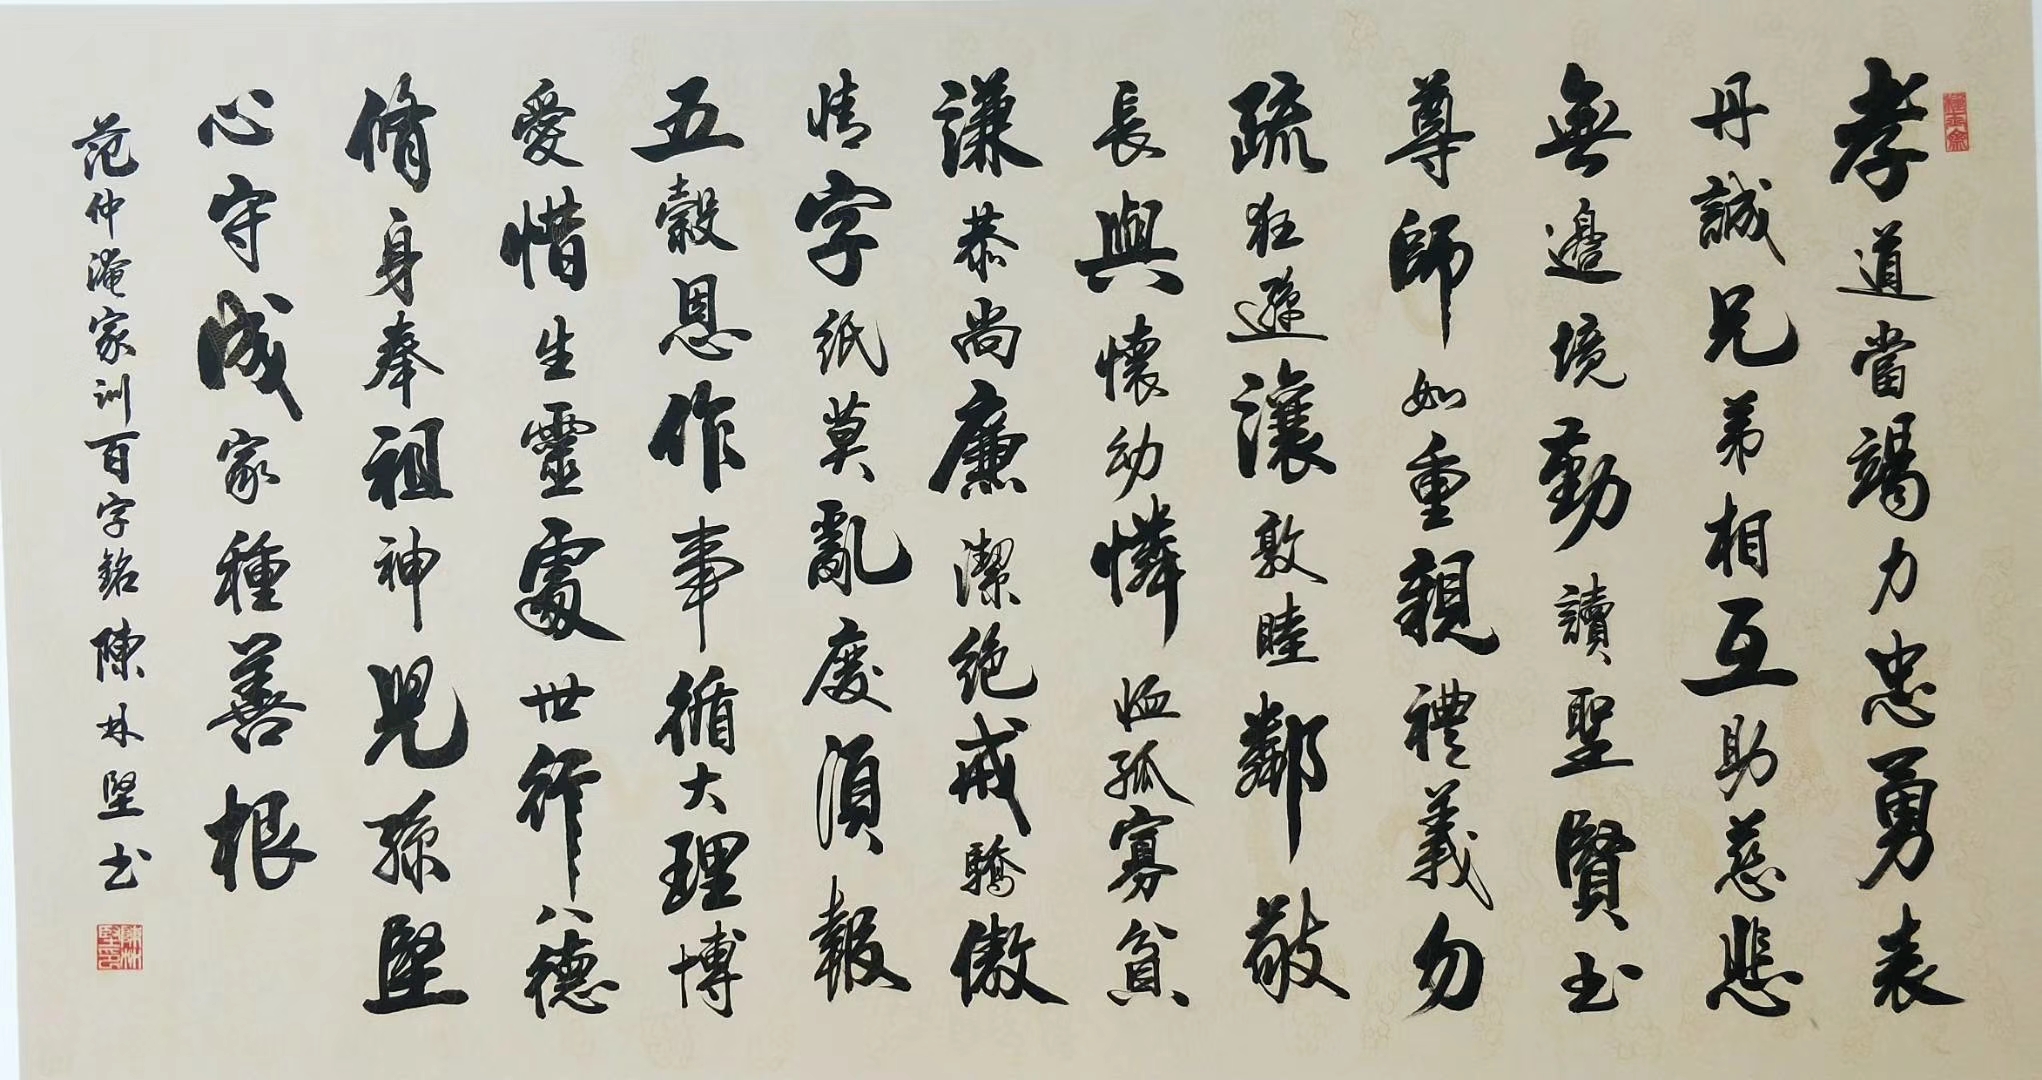 孝道當竭力忠勇表
丹誠兄弟相互助慈悲
無邊境勤讀聖賢书
尊師如重親禮義勿
疏狂遜讓敦睦鄰敬
長與懷幼憐恤孤寡貧
謙恭尚廉潔絕戒驕傲
情字紙莫亂廢須報
五穀恩作事循大理博
愛惜生靈處世行八德
脩身奉祖神兒孫堅
心守成家種善根
范仲淹家训百字銘陳林堅书
陳林堅印